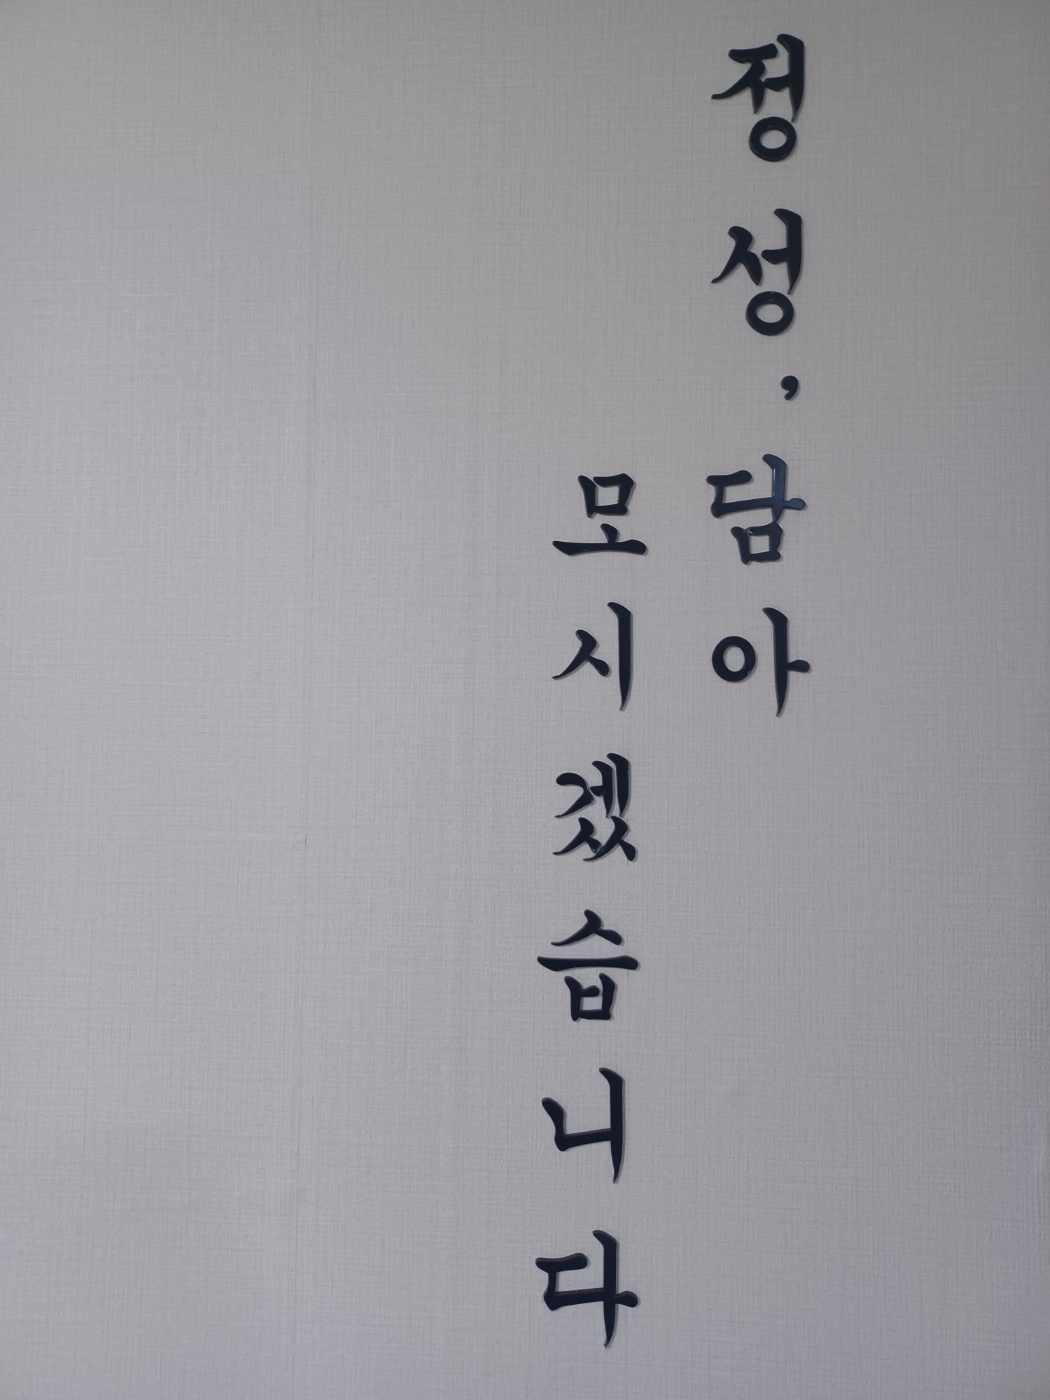 정성, 담아
모시겠습니다